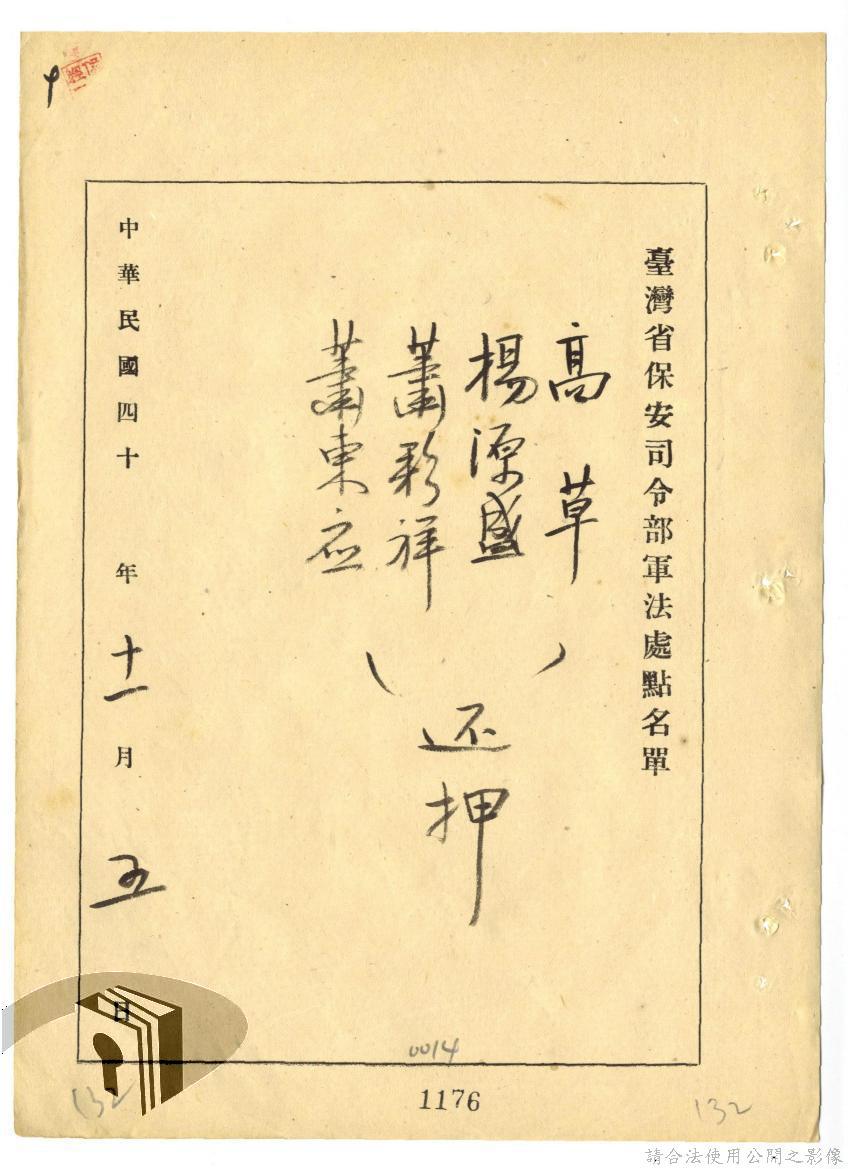 臺灣省保安司令部軍法處點名單
高草
楊源盛
蕭彩祥
蕭東応
还押
中華民國四十年十一月五日
0014
1176
132
132
請合法使用公開之影像